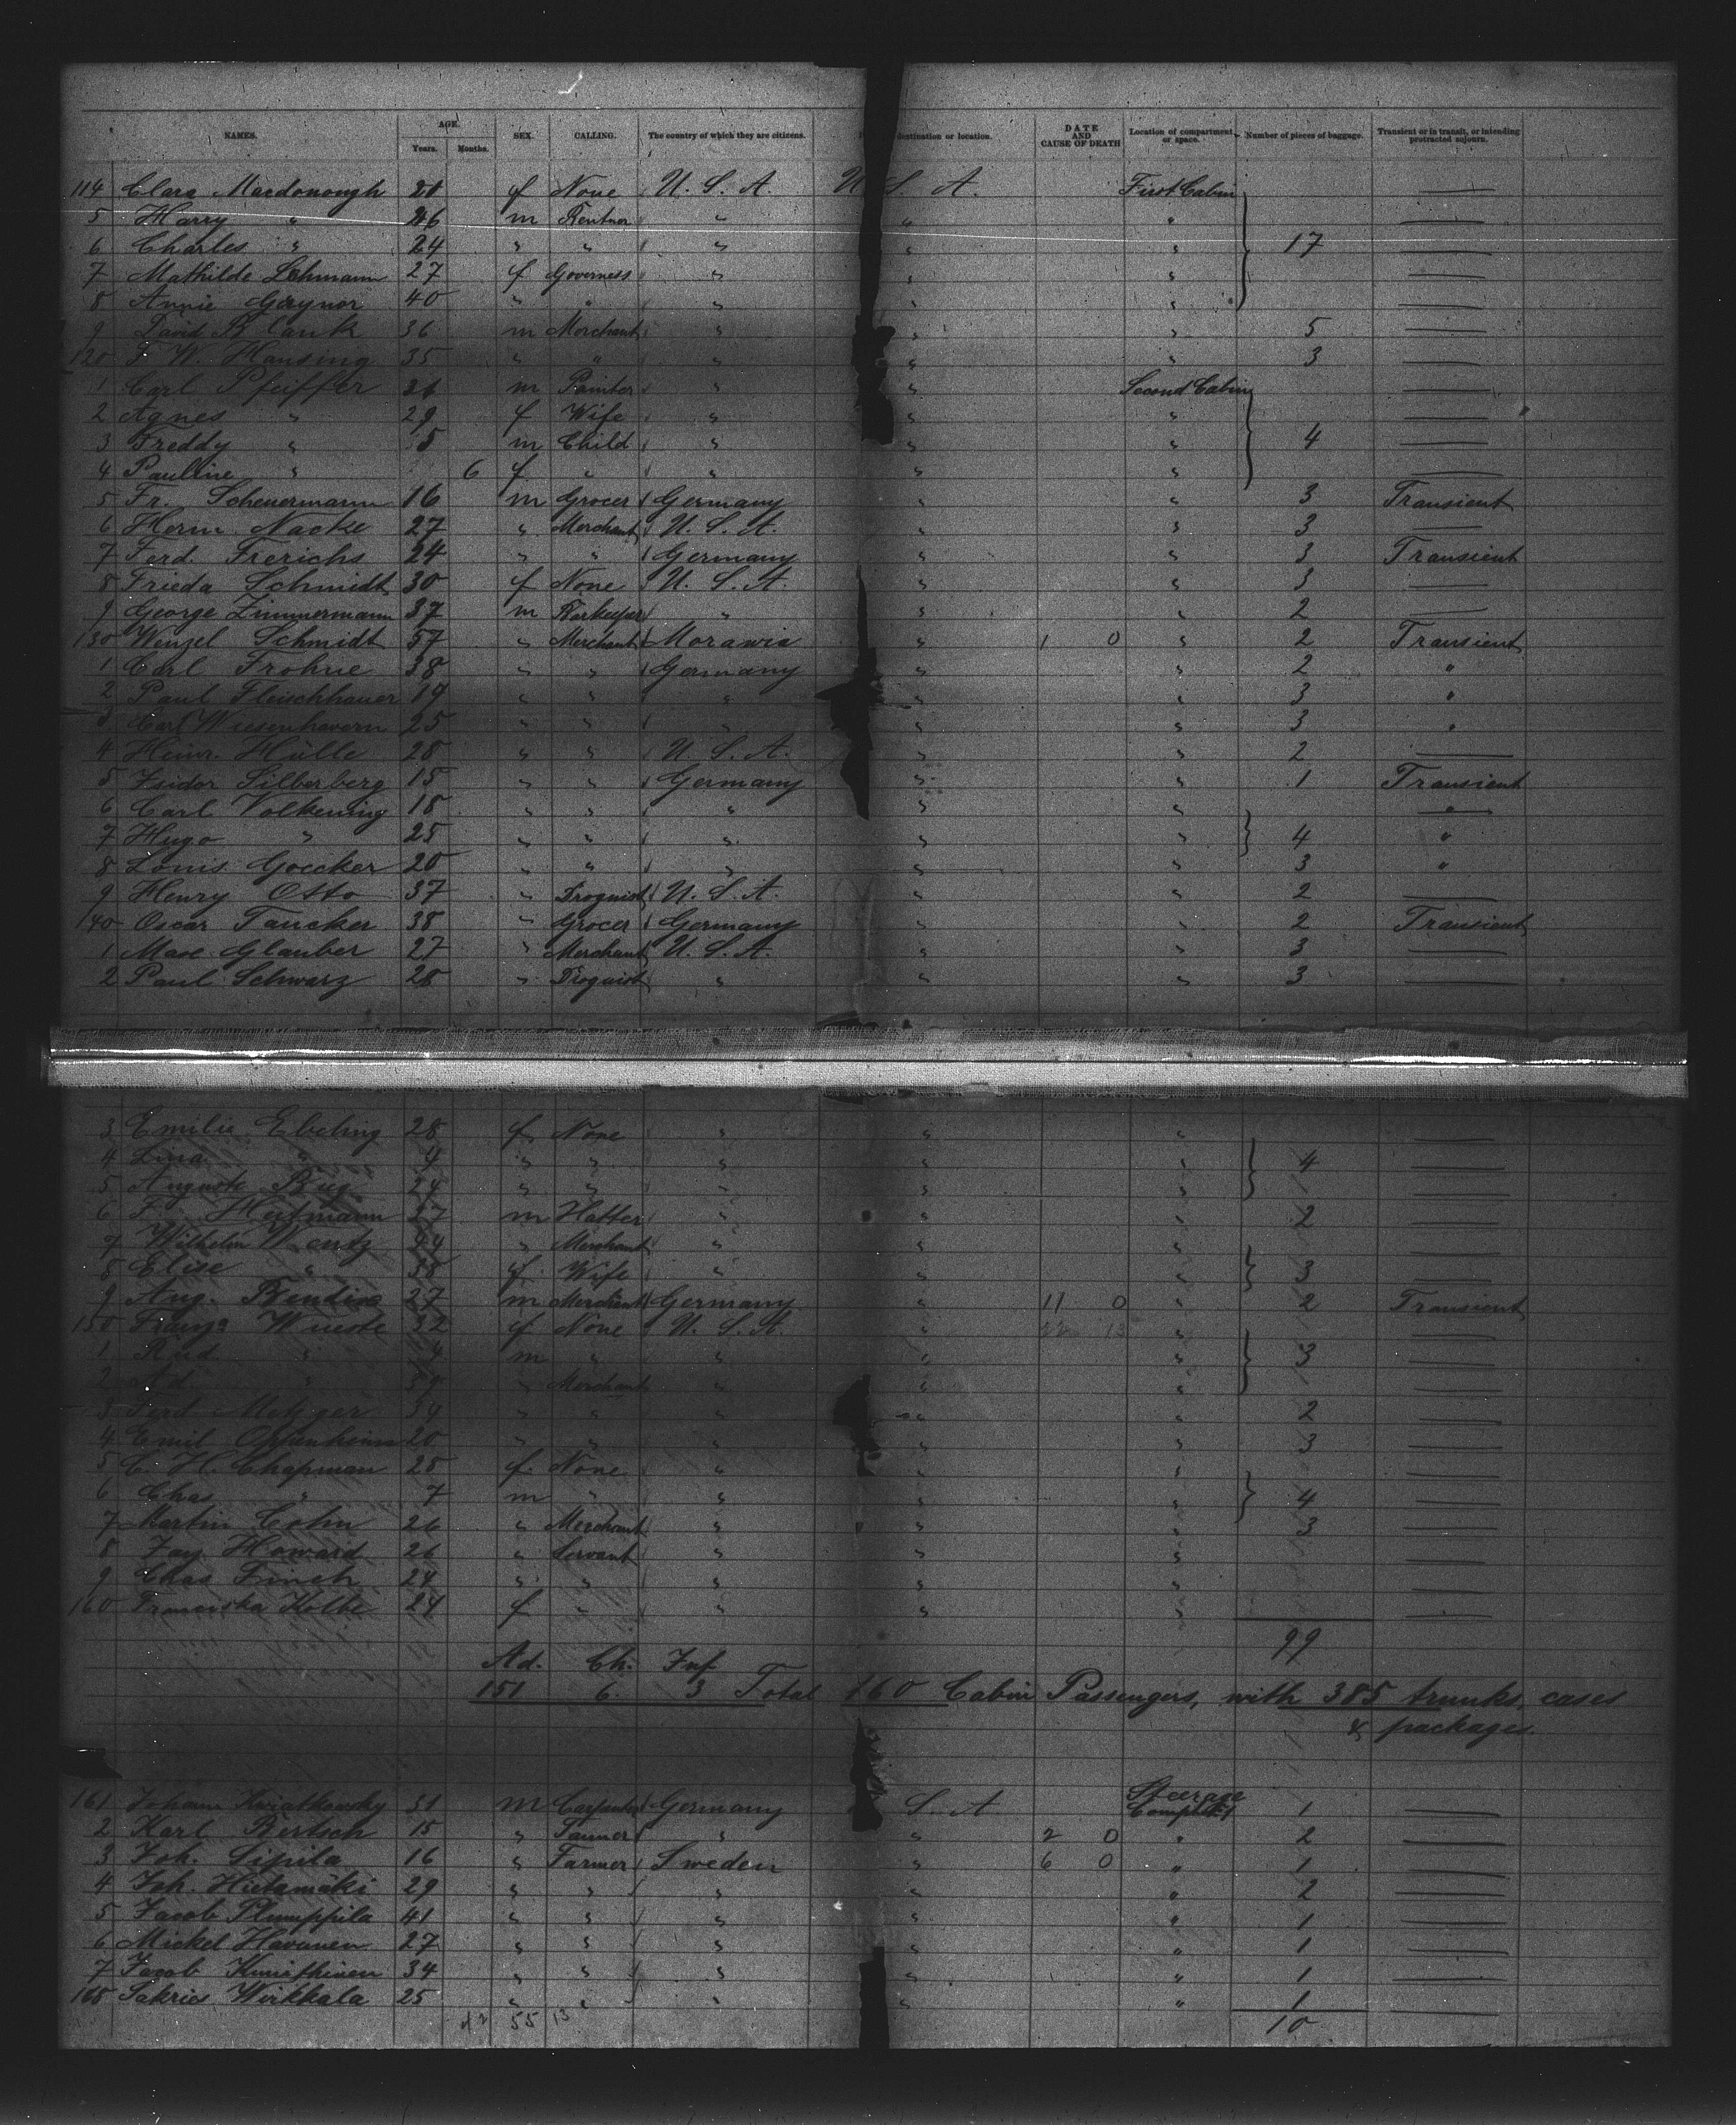 NAMES. AGE. Years. Months. SEX. CALLING. The country of which they are citizens. destination or location. DATE AND CAUSE OF DEATH Location of compartment or space. Number of pieces of baggage. Transient or in transit, or intending protracted sojourn.
114 Clara Macdonough f None U. S. A. U S. A. First Cabin
5 Harry " m Rentner " " "
6 Charles " 24 " " " " " 17
7 Mathilde Lehmann 27 f Governess " " "
8 Annie Gaynor 40 " " " " "
9 David B 36 m Merchant " " " 5
120 F. W. Hansing 35 " " " " " 3
1 Carl Pfeiffer m Painter " " Second Cabin
2 Agnes " 29 f Wife " " "
3 Freddy " 5 m Child " " " 4
4 Pauline " 6 f " " " "
5 Fr. Scheuermann 16 m Grocer Germany " " 3 Transient
6 Herm. Nacke 27 " Merchant U. S. A. " " 3
7 Ferd. Frerichs 24 " " Germany " " 3 Transient
8 Frieda Schmidt 30 f None U. S. A. " " 3
9 George Zimmermann 37 m Barkeeper " " " 2
130 Wenzel Schmidt 57 " Merchant Morawia " 1 0 " 2 Transient
1 Carl Frohne 38 " " Germany " " 2 "
2 Paul Fleischhauer 19 " " " " " 3 "
3 Carl Wiesenhavern 25 " " " " " 3 "
4 Heinr. Hülle 28 " " U. S. A. " " 2
5 Isidor Silberberg 15 " " Germany " " 1 Transient
6 Carl Volkening 18 " " " " " "
7 Hugo " 25 " " " " " 4 "
8 Louis Goecker 20 " " " " " 3 "
9 Henry Otto 37 " Droguist U. S. A. " " 2
140 Oscar Taucker 38 " Grocer Germany " " 2 Transient
1 Max Glauber 27 " Merchant U. S. A. " " 3
2 Paul Schwarz 28 " Droguist " " " 3
3 Emilie Ebeling 28 f None " " "
4 Lina " 4 " " " " " 4
5 Auguste 24 " " " " "
6 F. Heitmann 27 m Hatter " " " 2
7 Wilhelm Wentz 44 " Merchant " " "
8 Elise " 38 f Wife " " " 3
9 Aug. Bendix 27 m Merchant Germany " 11 0 " 2 Transient
150 Wueste 32 f None U. S. A. " "
1 Rud. " 4 m " " " " 3
2 " 39 " Merchant " " "
3 Ferd. Metzger 34 " " " " " 2
4 Emil Oppenheim 20 " " " " " 3
5 C. H. Chapman 28 f. None " " "
6 Chas " 7 m " " " " 4
7 Martin Cohn 26 " Merchant " " " 3
8 Jay Howard 26 " Servant " " "
9 Chas Finch 24 " " " " "
160 Franciska Kolbe 24 f " " " "
99
Ad. Ch. Inf
151 6. 3 Total 160 Cabin Passengers, with 385 trunks, cases
& packages.
161 Johann Kwiatkowsky 31 m Carpenter Germany S. A Steerage Compt. 1 1
2 Karl Bertsch 15 " Tanner " " 2 0 " 2
3 Joh. Sipila 16 " Farmer Sweden " 6 0 " 1
4 Joh. Hietamäki 29 " " " " " 2
5 Jacob 41 " " " " " 1
6 Mickel Havunen 27 " " " " 1
7 Jacob 34 " " " " " 1
168 Sakries Wirkkala 25 " " " " " 1
55 13 10